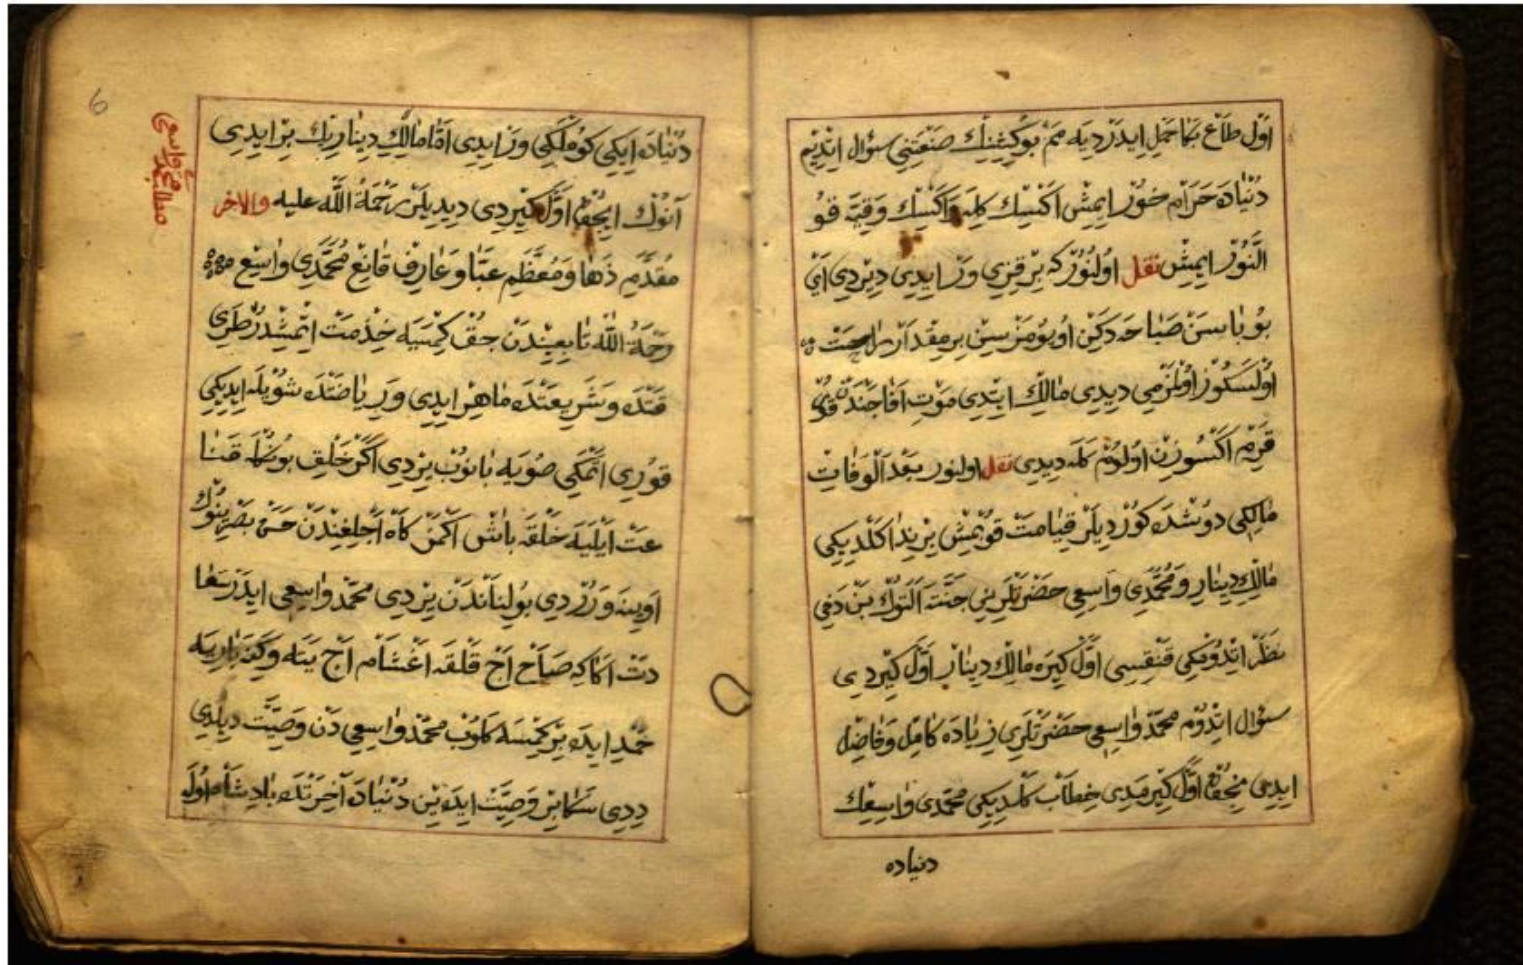 اول طاغ بكا حمل ايدر ديه هم بو كشينك صنعتنى سؤال اتديم
دنياده حرام خور ايمش اكسك كله و اكسك وقيه قو
النور ايمش نقل اولنور كه بر قزى ور ايدى ديردى اى
بو بابا سن صباحه دكين اويومزسين بر مقدار راحت
اولسكوز اولمزمى ديدى مالك ايتدى موت افاجندن قور
قرم اكسوزن اولوم كله ديدى نقل اولنور بعد الوفات
مالكى دوشده كورديلر قيامت قوپمش بر ندا كلديكى
مالك دينار و محمدى واسعى حضرتلرينى جنته التوك بن دخى
نظر اتدومكى قنقسى اول كيره مالك دينار اول كيردى
سؤال اتدوم محمد واسعى حضرتلرى زياده كامل وفاضل
ايدى نيچون اول كيرمدى خطاب كلديكى محمدى واسعك
دنياده
6
دنياده ايكى كوملكى ور ايدى اما مالك دينارك بر ايدى
آنوك ايچون اول كيردى ديديلر رحمة الله عليه والاخر
مقدم ذها و معظم عبا و عارف قانع محمدى واسع
رحمة الله تابعيندن چق كمسيه خدمت اتمشدر طرى
قتده و شريعتده ماهر ايدى و رياضتده شويله ايديكى
قورى اتمكى صويه بانوب يردى اكر خلق بونكله قنا
عت ايليه خلقه باش اكمز كاه اجلغندن حسن بصرينوك
اوينه ورردى بولناندن يردى محمد واسعى ايدر سعا
دت اكا كه صباح اج قلقه اغشام اج يته وكنه تاريه
حمد ايده بر كمسه كلوب محمد واسعى دن وصيت ديلدى
ددى سكا بر وصيت ايده ين دنياده آخرتده پادشاه اوله